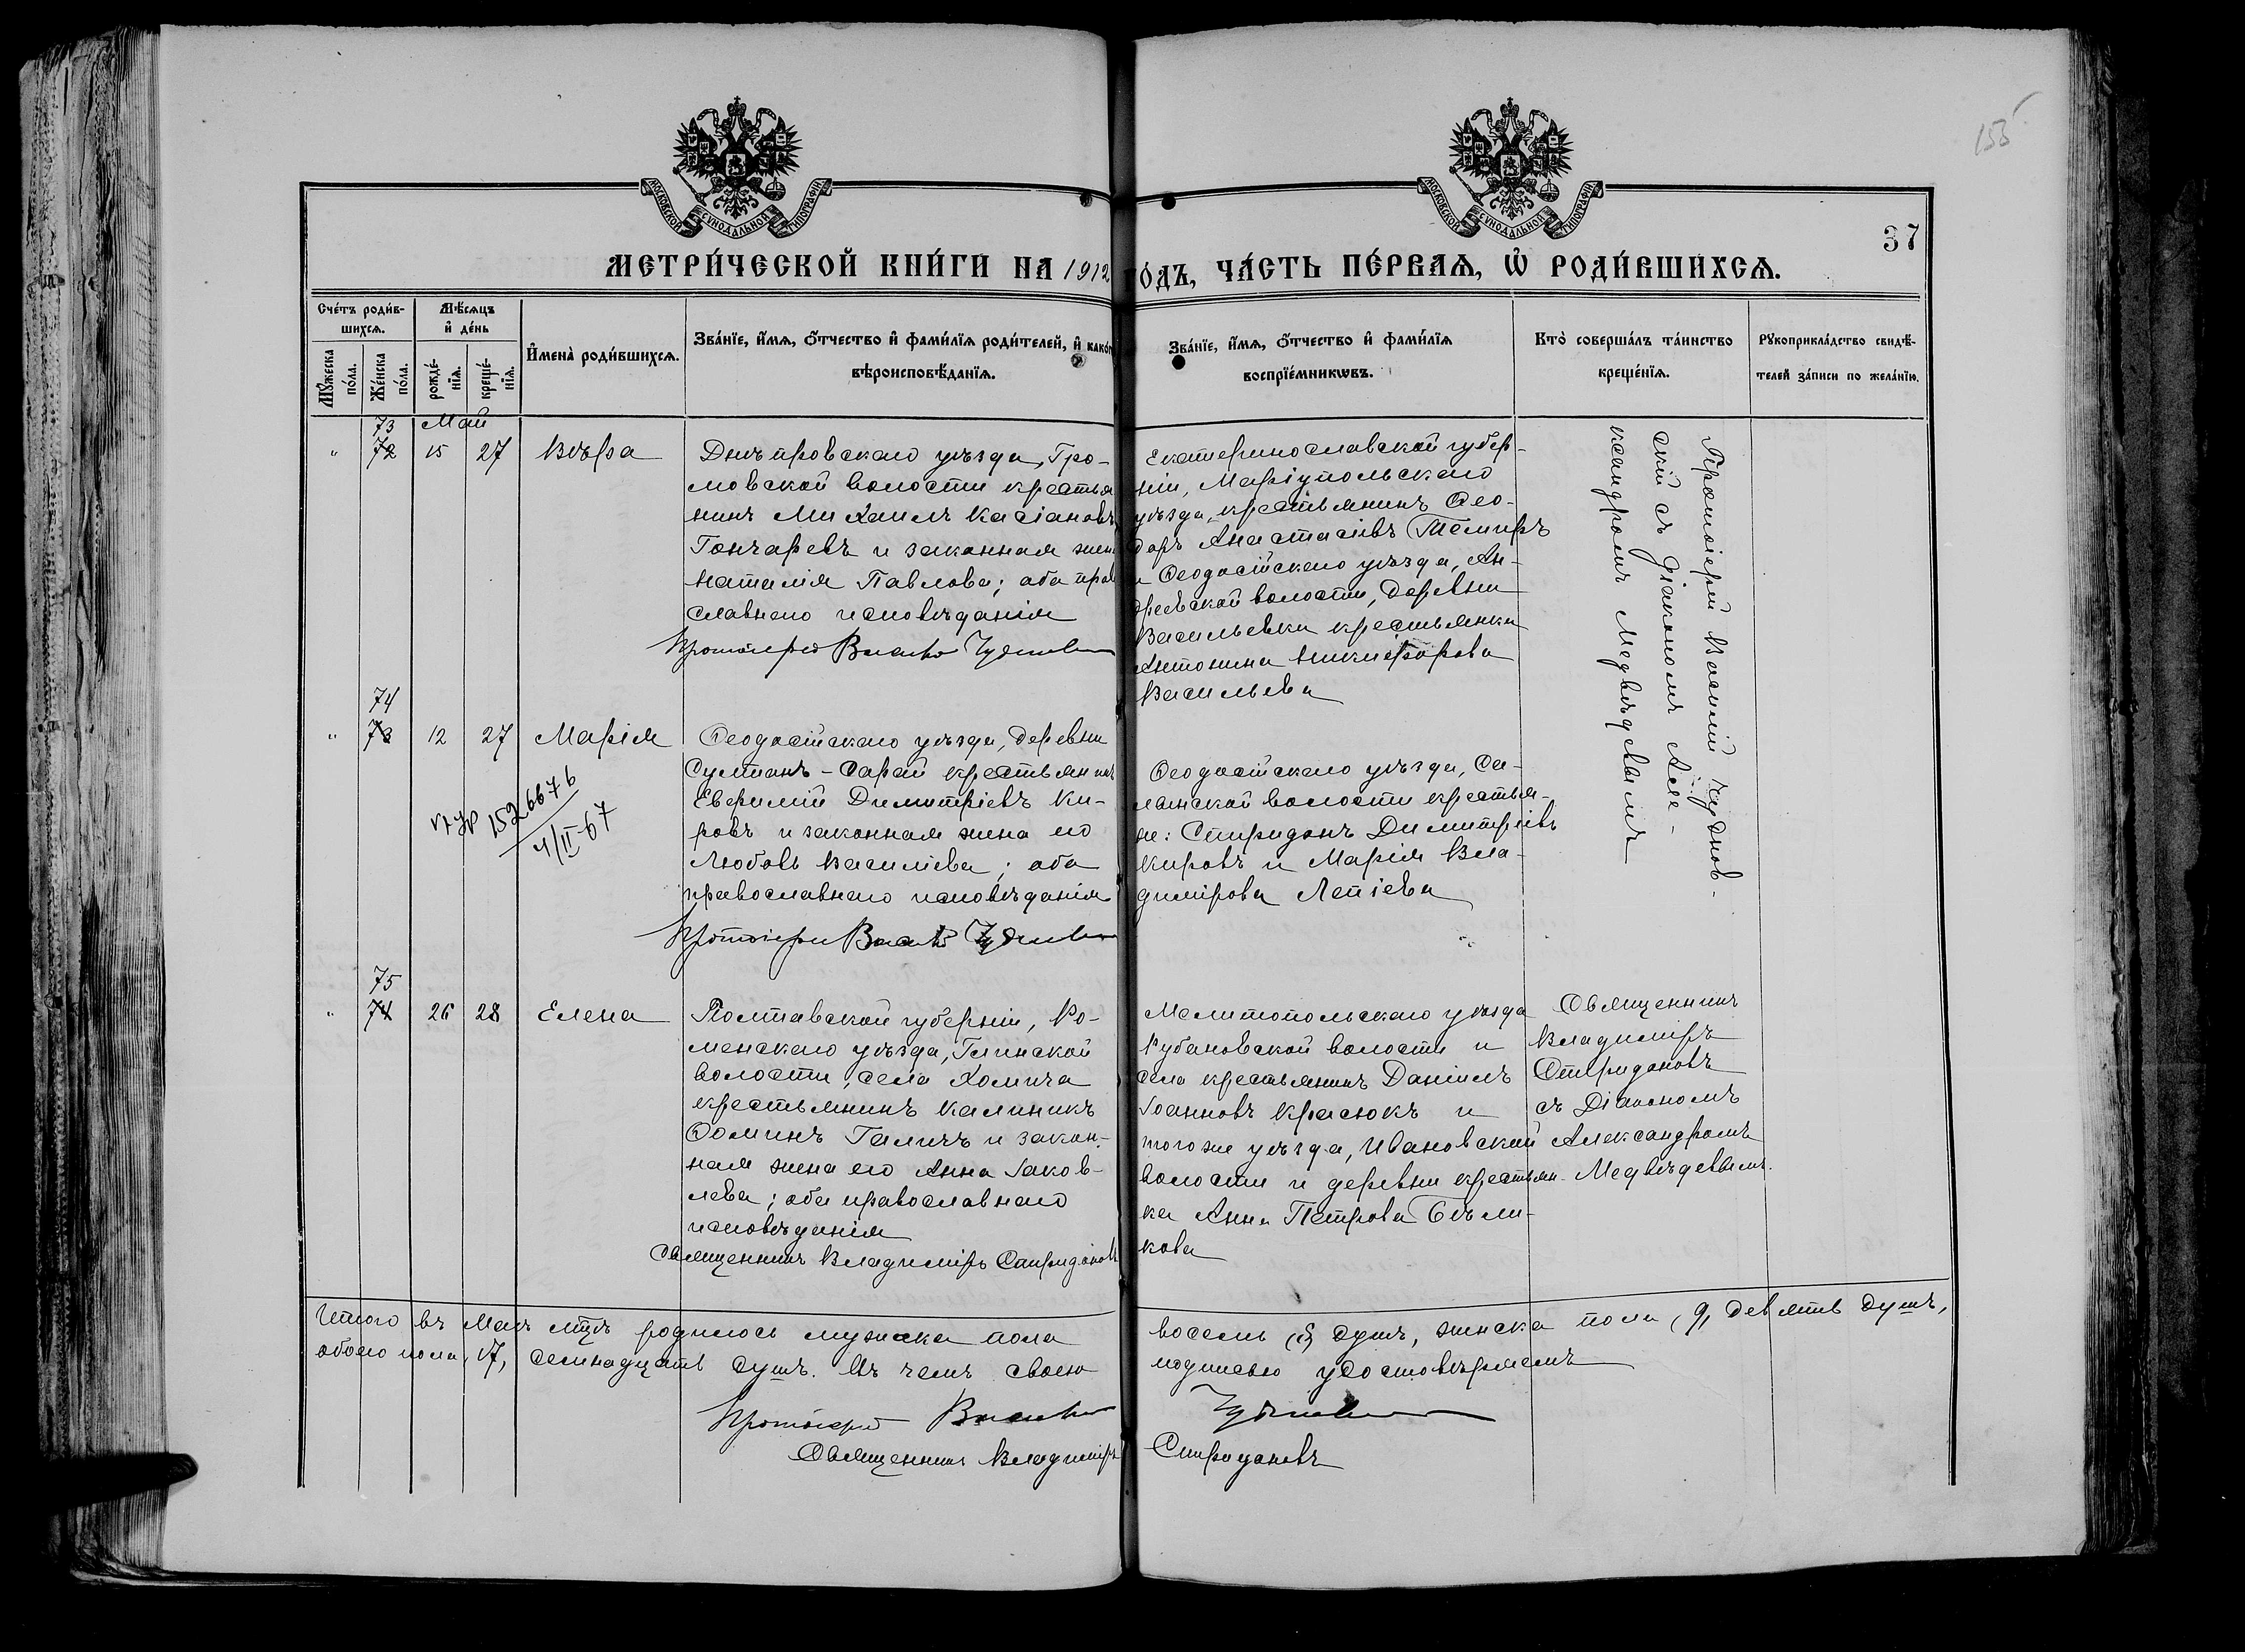 155
МОСКОВСКОЙ СУНОДАЛЬНОЙ ТИПОГРАФІИ
МОСКОВСКОЙ СУНОДАЛЬНОЙ ТИПОГРАФІИ
37
МЕТРИ́ЧЕСКОЙ КНИ́ГИ НА 1912
О́ДЪ, ЧА́СТЬ ПЕ́РВАЯ, Ѡ҆ РОДИ́ВШИХСЯ.
Сче́тъ роди́в-
шихся.
Мѣ́сяцъ
и҆ де́нь
Мꙋ́жеска по́ла.
Же́нска по́ла.
рожде́-
нїя.
креще́-
нїя.
И҆мена̀ роди́вшихся.
Зва́нїе, и҆́мя, ѻ҆́тчество и҆ фами́лїя роди́телей, и҆ како́г
вѣроисповѣ́данїя.
Зва́нїе, и҆́мя, ѻ҆́тчество и҆ фами́лїя
воспрїе́мникѡвъ.
Кто̀ соверша́лъ та́инство
креще́нїя.
Рꙋкоприкла́дство свидѣ́-
телей за́писи по жела́нїю.
73 Май
" 72 15 27 Вѣра
Днѣпровскаго уѣзда, Гро-
мовской волости крестья
нинъ Михаилъ Касіановъ
Гончаревъ и законная жен
Наталія Павлова; оба прав
славнаго исповѣданія
Протоіерей Василій Чудновск
Екатеринославской губер-
ніи, Маріупольскаго
уѣзда, крестьянинъ Ѳео-
доръ Анастасіевъ Темиръ
и Ѳеодосійскаго уѣзда, Ан-
дреевской волости, деревни
Васильевки крестьянка
Антонина Никифорова
Васильева
Протоіерей Василій Чуднов-
скій съ Діакономъ Але-
ксандромъ Медвѣдевымъ
74
" 73 12 27 Марія
Ѳеодосійскаго уѣзда, деревни
Султанъ-Сарай крестьянинъ
Евфимій Димитріевъ Ки-
ровъ и законная жена его
Любовь Василіева; оба
православнаго исповѣданія
Протоіерей Василій Чудновск
1526676
4/II-67
Ѳеодосійскаго уѣзда, Са-
ланской волости крестья-
не: Спиридонъ Димитріевъ
Кировъ и Марія Вла-
димірова Лапіева
75
" 74 26 28 Елена
Полтавской губерніи, Ро-
менскаго уѣзда, Глинской
волости, села Хомича
крестьянинъ Калиникъ
Ѳоминъ Галичъ и закон-
ная жена его Анна Іаков-
лева; оба православнаго
исповѣданія
Священникъ Владиміръ Спиридоновъ
Мелитопольскаго уѣзда
Рубановской волости и
села крестьянинъ Даніилъ
Іоанновъ Красюкъ и
того же уѣзда, Ивановской
волости и деревни крестьян-
ка Анна Петрова Бѣли-
кова
Священникъ
Владиміръ
Спиридоновъ
съ Діакономъ
Александромъ
Медвѣдевымъ.
Итого въ Маѣ мцѣ родилось мужска пола
восемь (8) душъ, женска пола (9) девять душъ,
обоего пола, 17, семнадцать душъ. Въ чемъ своею
подписью удостовѣряемъ
Протоіерей Василій
Чудновск
Священникъ Владиміръ
Спиридоновъ